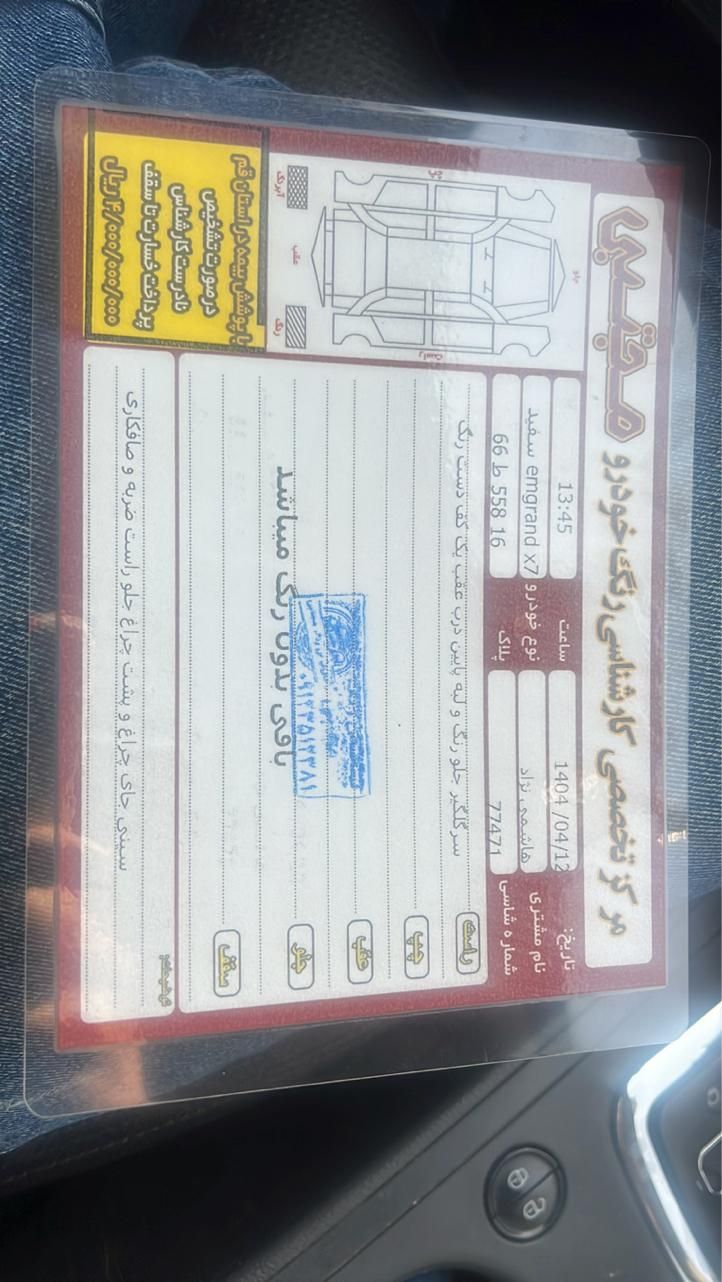 مرکز تخصصی کارشناسی رنگ خودرو مجتبی
تاریخ: 1404/04/12 ساعت 13:45
نام مشتری هاشمی نژاد نوع خودرو emgrand x7 سفید
شماره شاسی 77471 پلاک 66 ط 558 16
جلو
چپ
راست
عقب
آبرنگ
رنگ
راست سرگلگیر جلو رنگ و لبه پایین درب عقب یک کف دست رنگ
چپ
عقب
جلو
باقی بدون رنگ میباشد
سقف
۰۹۱۲۳۵۱۲۳۸۱
با پوشش بیمه در استان قم
در صورت تشخیص
نادرست کارشناس
پرداخت خسارت تا سقف
۴/۰۰۰/۰۰۰/۰۰۰ ریال
توضیحات:
سینی جای چراغ و پشت چراغ جلو راست ضربه و صافکاری